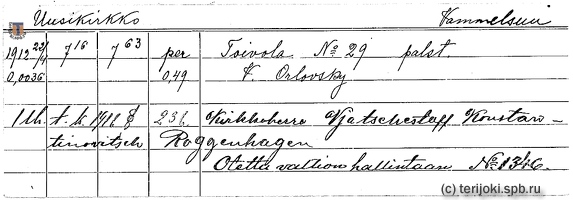 Uusikirkko Vammelsuu
1912 22/4 7 16 7 63 per Toivola № 29 palst.
0,0036 0,49 V. Orlovsky
1 th. t. k. 1912 236 Kirkkoherra Vjatscheslaff Konstan-
tinovitsch Roggenhagen
Otettu valtion hallintaan № 1346.
(c) terijoki.spb.ru